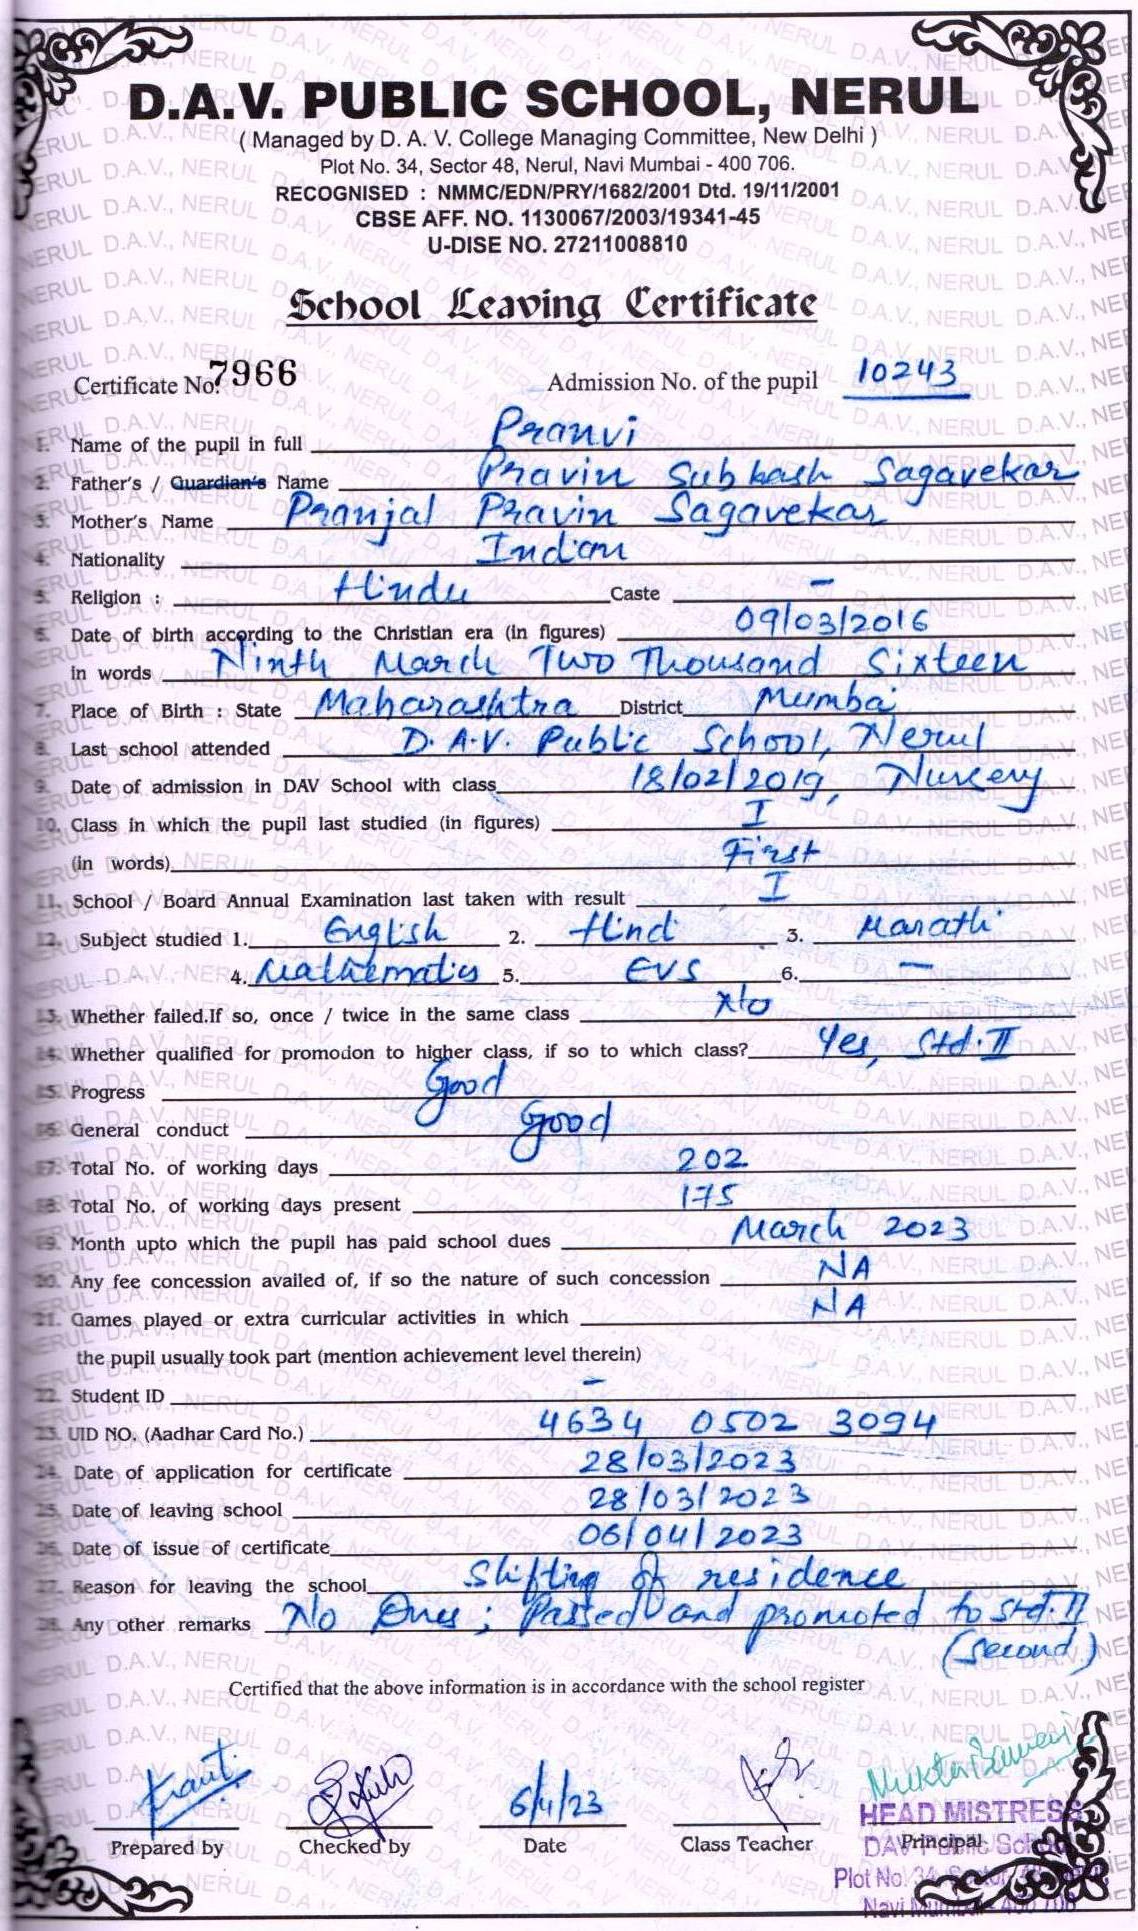 D.A.V. PUBLIC SCHOOL, NERUL
( Managed by D. A. V. College Managing Committee, New Delhi )
Plot No. 34, Sector 48, Nerul, Navi Mumbai - 400 706.
RECOGNISED : NMMC/EDN/PRY/1682/2001 Dtd. 19/11/2001
CBSE AFF. NO. 1130067/2003/19341-45
U-DISE NO. 27211008810
School Leaving Certificate
Certificate No. 7966 Admission No. of the pupil 10243
1. Name of the pupil in full Pranvi
2. Father's / Guardian's Name Pravin Subhash Sagavekar
3. Mother's Name Pranjal Pravin Sagavekar
4. Nationality Indian
5. Religion : Hindu Caste -
6. Date of birth according to the Christian era (in figures) 09/03/2016
in words Ninth March Two Thousand Sixteen
7. Place of Birth : State Maharashtra District Mumbai
8. Last school attended D.A.V. Public School, Nerul
9. Date of admission in DAV School with class 18/02/2019, Nursery
10. Class in which the pupil last studied (in figures) I
(in words) First
11. School / Board Annual Examination last taken with result I
12. Subject studied 1. English 2. Hindi 3. Marathi
4. Mathematics 5. EVS 6. -
13. Whether failed.If so, once / twice in the same class No
14. Whether qualified for promodon to higher class, if so to which class? Yes, Std. II
15. Progress Good
16. General conduct Good
17. Total No. of working days 202
18. Total No. of working days present 175
19. Month upto which the pupil has paid school dues March 2023
20. Any fee concession availed of, if so the nature of such concession NA
21. Games played or extra curricular activities in which NA
the pupil usually took part (mention achievement level therein)
22. Student ID -
23. UID NO. (Aadhar Card No.) 4634 0502 3094
24. Date of application for certificate 28/03/2023
25. Date of leaving school 28/03/2023
26. Date of issue of certificate 06/04/2023
27. Reason for leaving the school Shifting of residence
28. Any other remarks No Dues; Passed and promoted to Std. II
(Second)
Certified that the above information is in accordance with the school register
6/4/23
Prepared by Checked by Date Class Teacher Principal
HEAD MISTRESS
DAV Public School
Plot No. 34, Sector
Navi Mumbai - 400 706